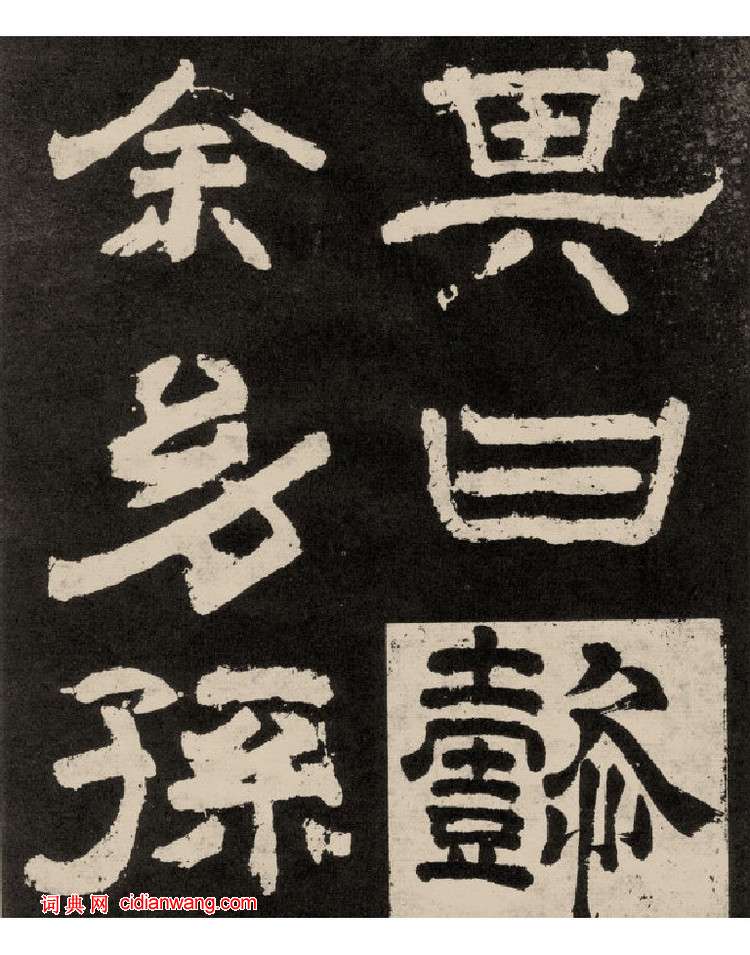 其曰懿
余身孫
词典网 cidianwang.com